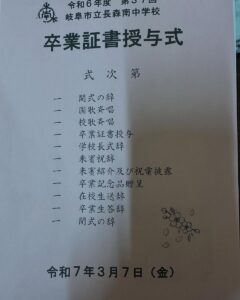 令和6年度 第37回
岐阜市立長森南中学校
卒業証書授与式
式次第
一 開式の辞
一 国歌斉唱
一 校歌斉唱
一 卒業証書授与
一 学校長式辞
一 来賓祝辞
一 来賓紹介及び祝電披露
一 卒業記念品贈呈
一 在校生送辞
一 卒業生答辞
一 閉式の辞
令和7年3月7日（金）